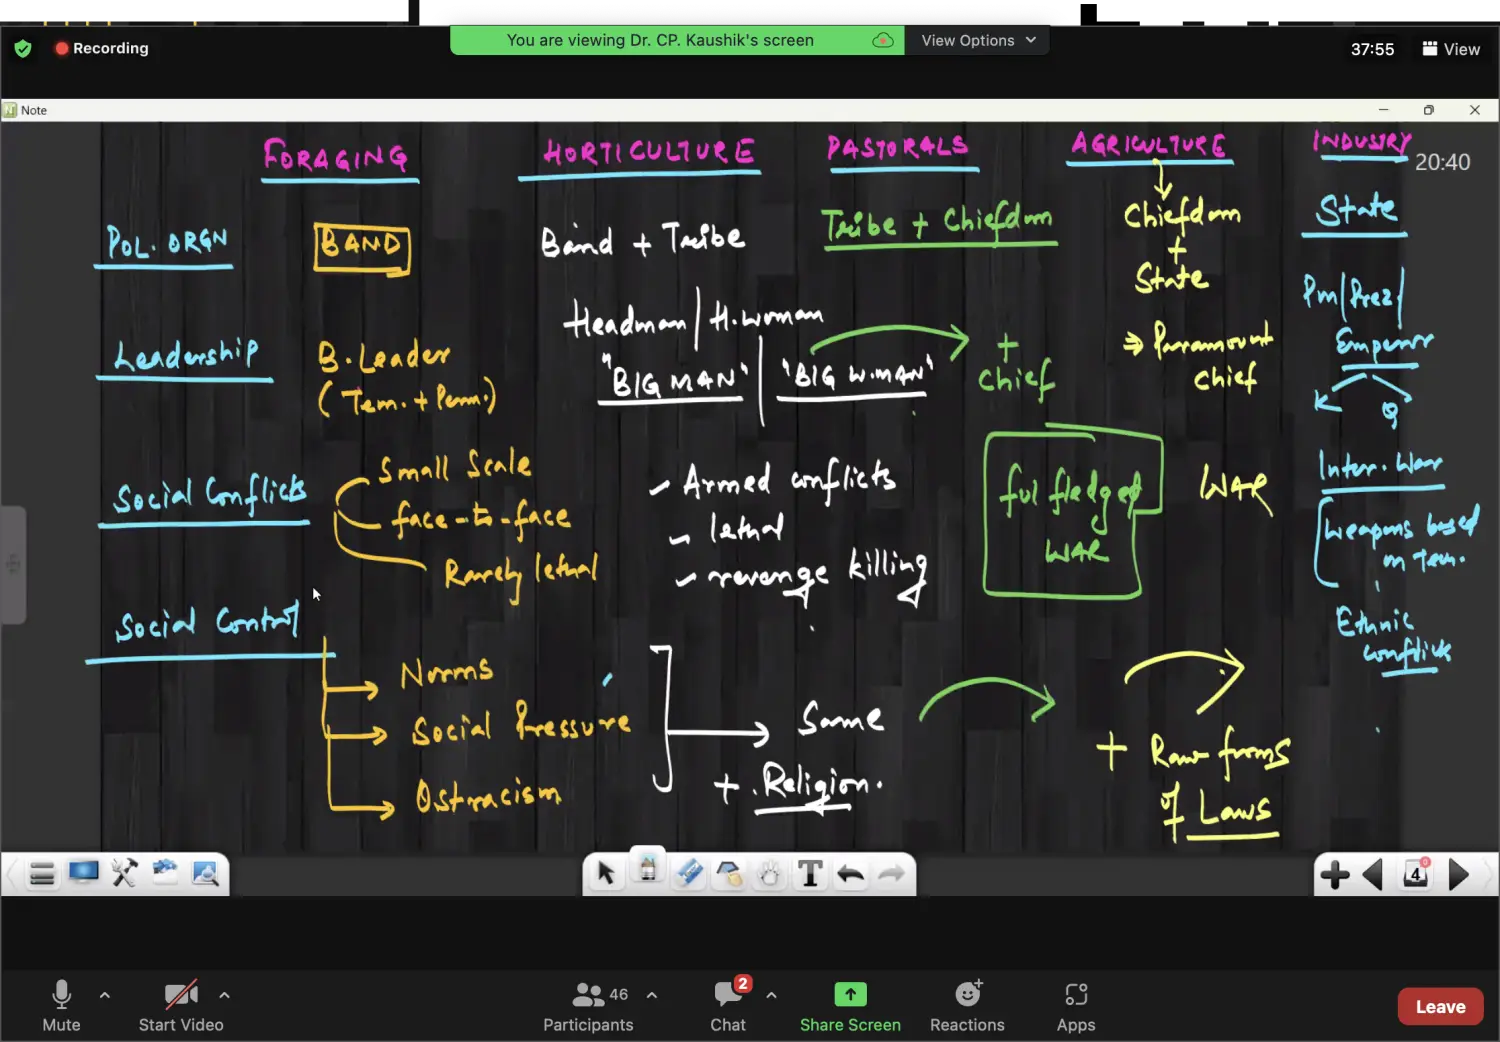 Recording
You are viewing Dr. CP. Kaushik's screen
View Options
37:55
View
Note
FORAGING
HORTICULTURE
PASTORALS
AGRICULTURE
INDUSTRY
20:40
POL. ORGN
BAND
Band + Tribe
Tribe + Chiefdom
Chiefdom
+
State
State
Leadership
B. Leader
(Tem. + Perm.)
Headman | H.woman
"BIG MAN" | "BIG W.MAN"
+
Chief
⇒ Paramount
chief
Pm/Prez/
Emperor
K Q
Social Conflicts
Small Scale
face-to-face
Rarely lethal
Armed conflicts
lethal
revenge killing
ful fledged
WAR
WAR
Inter. War
Weapons based
on Tecn.
Ethnic
conflicts
Social Control
Norms
Social Pressure
Ostracism
Same
+ Religion.
+ Raw froms
of Laws
T
4
0
Mute
Start Video
46
Participants
2
Chat
Share Screen
Reactions
Apps
Leave